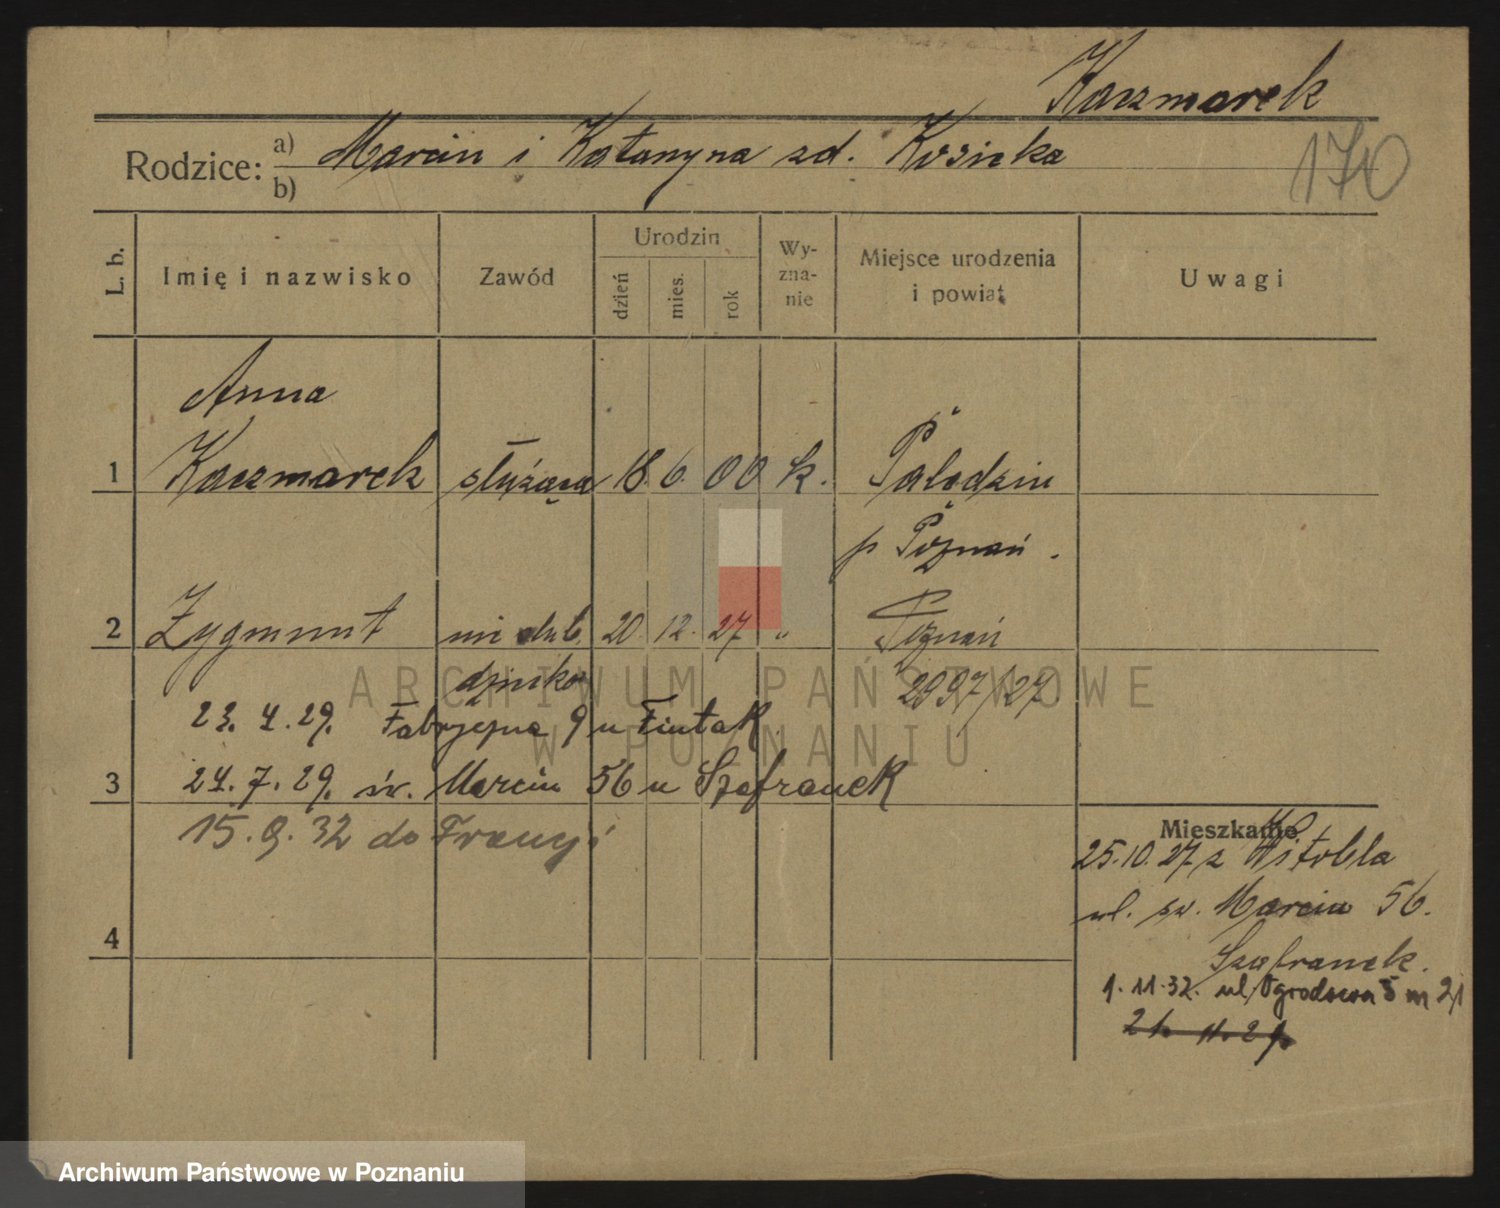 Kaczmarek
170
Rodzice: a) Marcin i Katarzyna zd. Kosicka
b)
L. b. Imię i nazwisko Zawód Urodzin dzień mies. rok Wyzna-nie Miejsce urodzenia i powiat Uwagi
Anna
1 Kaczmarek służąca 18. 6. 00 k. Palędzie
p Poznań.
2 Zygmunt 20. 12. 27 " Poznań
2997/27
23. 4. 29. Fabryczna 9 u
3 24. 7. 29. św. Marcin 56 u Szafranek
15. 9. 32 do Francji
4
Mieszkanie
25.10.27 z Witobla
ul. św. Marcin 56.
Szafranek.
1. 11. 32. ul. Ogrodowa 5 m 21
ARCHIWUM PAŃSTWOWE
W POZNANIU
Archiwum Państwowe w Poznaniu